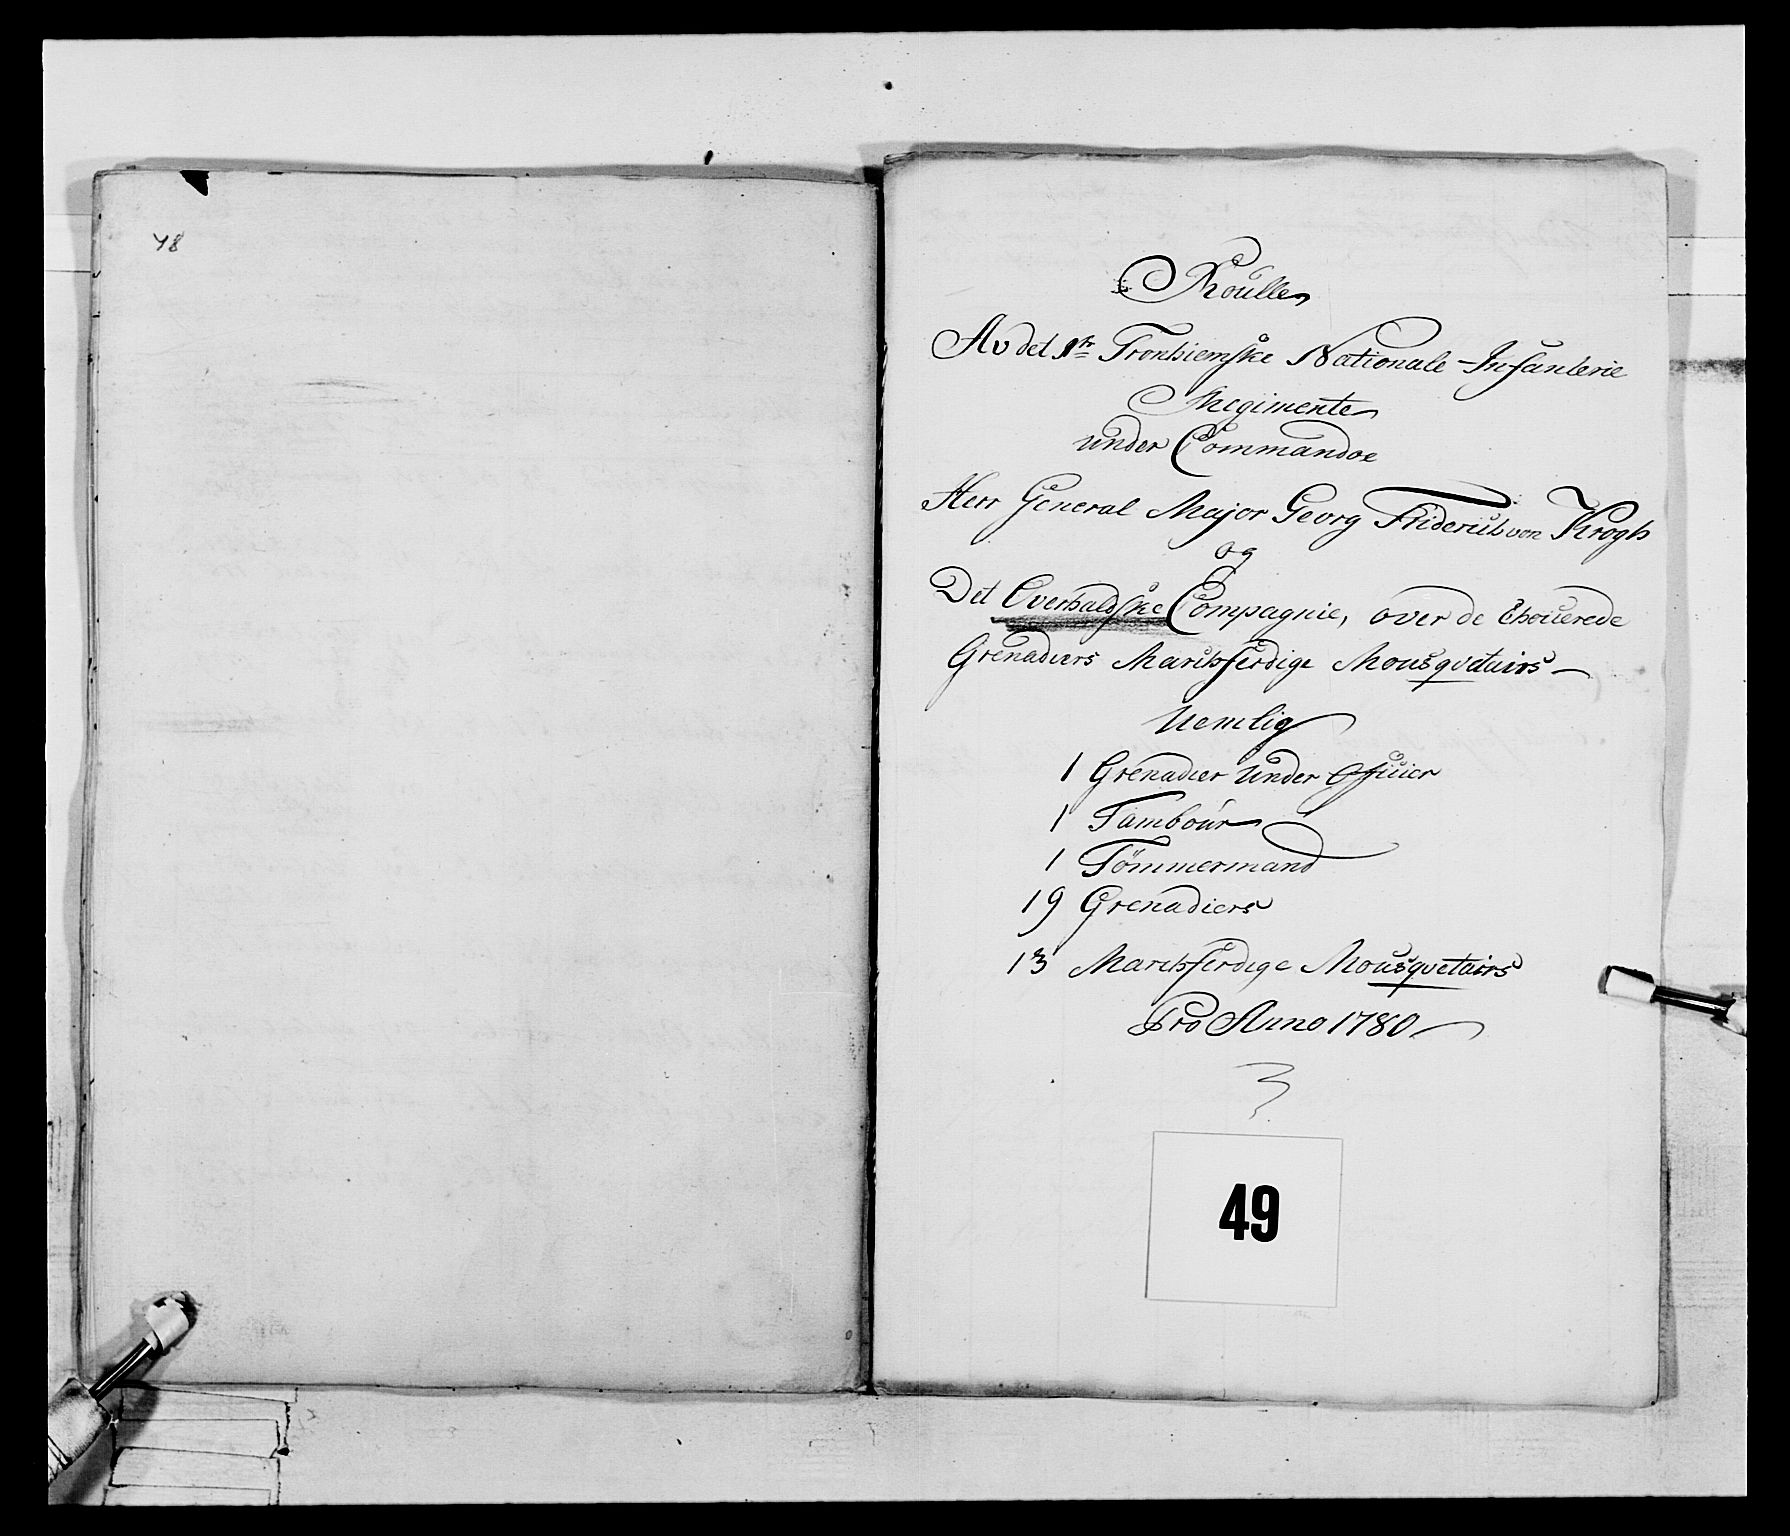 48
Roulle
Av det 1te Tronhiemske Nationale-Infanterie
Regimente
under Commandoe
Herr General Major Georg Friderich von Krogh
og
Det Overhaldske Compagnie, over de Enrouerede
Grenadiers Marchferdige Mousqvetairs
Nemlig
1 Grenadier Under Officier
1 Tambour
1 Tömmermand
19 Grenadiers
13 Marchferdige Mousqvetairs
Pro Anno 1780
49